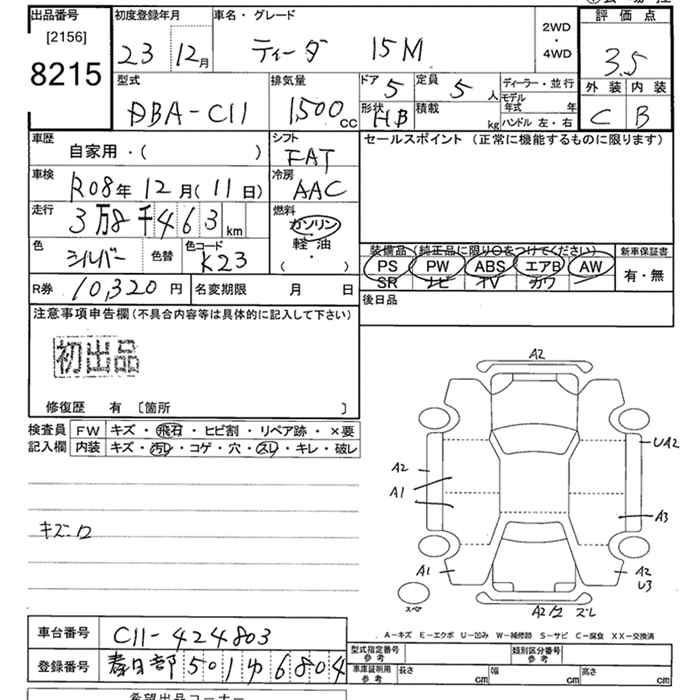 出品番号
[2156]
8215
初度登録年月
23 12月
車名・グレード
ティーダ 15M
2WD
・
4WD
評価点
3.5
外装 内装
C B
型式
DBA-C11
排気量
1500cc
ドア 5
定員 5人
形状 HB
積載 kg
ディーラー・並行
モデル年式 年
ハンドル 左・右
車歴
自家用・( )
シフト
FAT
セールスポイント (正常に機能するものに限ります)
車検
R08年12月(11日)
冷房
AAC
走行
3万8千463km
燃料
ガソリン
軽油
( ・ )
色
シルバー
色替
色コード
K23
装備品 (純正品に限り○をつけてください)
PS PW ABS エアB AW
SR ナビ TV カワ
新車保証書
有・無
R券 10,320円
名変期限 月 日
後日品
注意事項申告欄(不具合内容等は具体的に記入して下さい)
初出品
修復歴 有 〔箇所 〕
検査員記入欄
FW キズ・飛石・ヒビ割・リペア跡・×要
内装 キズ・汚れ・コゲ・穴・スレ・キレ・破レ
キズ・ワ
A2
UA2
A2
A1
A3
A1
A2
U3
スペア
A2 ズレ
A-キズ E-エクボ U-凹み W-補修跡 S-サビ C-腐食 XX-交換済
車台番号 C11-424803
登録番号 春日部 501 ゆ 6804
型式指定番号 参考
類別区分番号 参考
車庫証明用 参考
長さ cm 幅 cm 高さ cm
希望出品コーナー